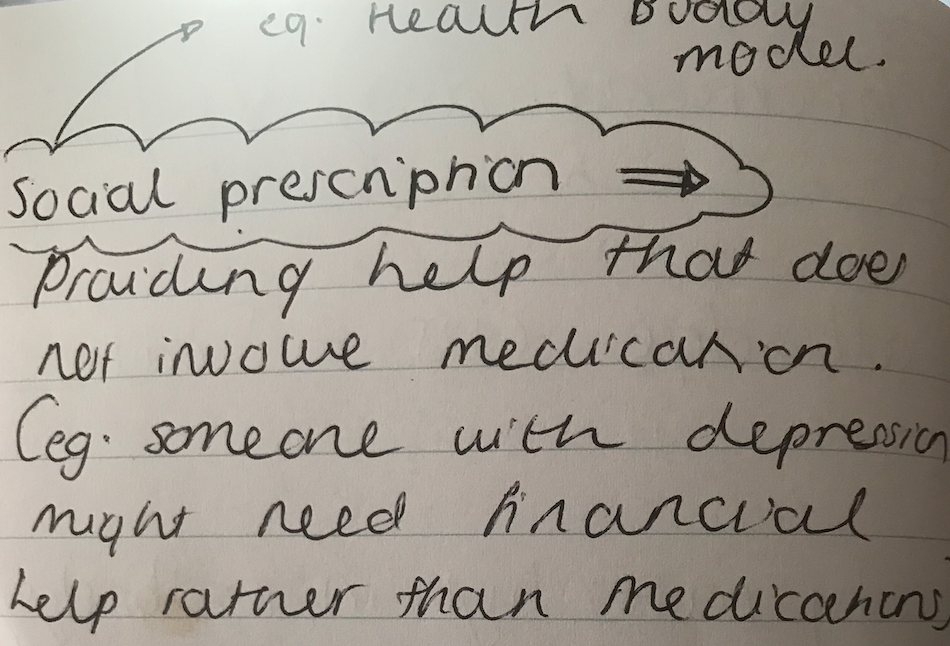 eg. Health Buddy
model.
social prescription ⇒
Providing help that does
not involve medication.
(eg. someone with depression
might need financial
help rather than medications)